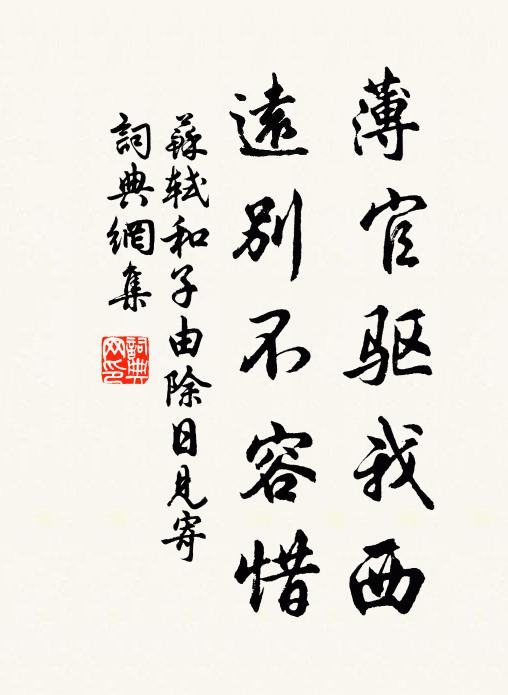 薄官驱我西
遠別不容惜
蘇軾和子由除日見寄
詞典網集
詞典网印